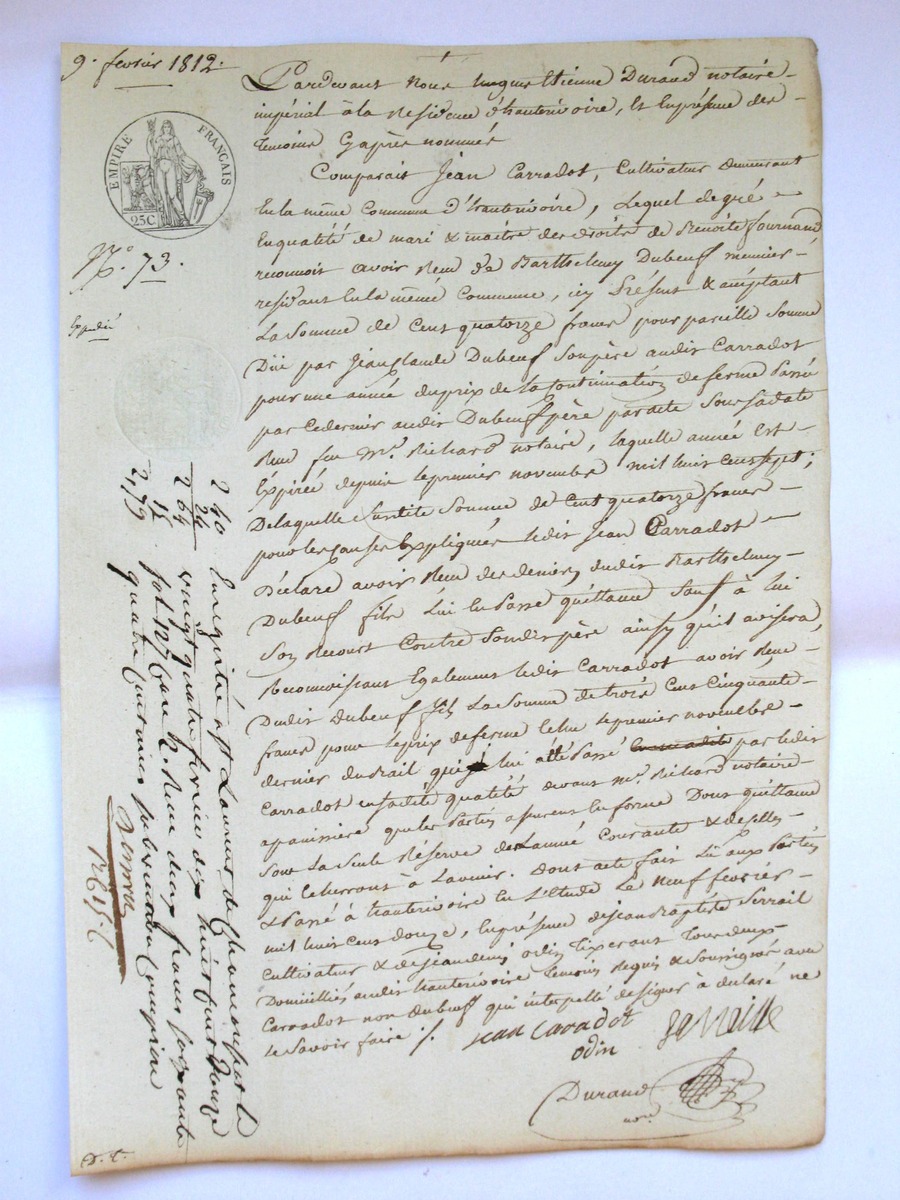 9. fevrier 1812.
EMPIRE FRANÇAIS
25C
N.° 73.
Expedié
Pardevant Nous hugues Etienne Durand notaire
impérial à la Residence d'hauterivoire, et En présence des
temoins Cyaprès nommés
Comparait Jean Carradot, Cultivateur Demeurant
En la même Commune d'hauterivoire, Lequel de gré
En qualité de mari & maitre des droits de Benoite fournand
reconnoit avoir Reçu de Barthelemy Dubeuf meunier
residant En la même Commune, icy Présent & acceptant
La Somme de Cent quatorze francs pour pareille Somme
Düe par Jean Claude Dubeuf Son père audit Carradot
pour une année du prix de la Continuation de ferme Passé
par Ce dernier audit Dubeuf père par acte Sous Sa date
Reçu feu M.e Richard notaire, laquelle année Est
Expirée depuis le premier novembre mil huit Cent Sept;
De laquelle Susdite Somme de Cent quatorze francs
pour les Causes Expliquées ledit Jean Carradot
Déclare avoir Reçu des deniers dudit Barthelemy
Dubeuf fils Lui En Passe quittance Sauf à lui
Son Recours Contre Sondit père ainsy qu'il avisera,
Reconnoissant Egalement ledit Carradot avoir Reçu
Dudit Dubeuf fils La Somme de trois Cent Cinquante
francs pour le prix de ferme Echu le premier novembre
dernier du Bail qui lui a été Passé par ledit
Carradot en Sadite qualité devant M.e Richard notaire
a panissière que les Parties assurent En forme Dont quittance
Sous La Seule Réserve de L'année Courante & de Celles
qui Echerront à L'avenir. Dont acte fait Lu aux Parties
& Passé à hauterivoire En L'Etude Le Neuf fevrier
mil huit Cent douze, En présence de jean Baptiste Serrail
Cultivateur & de Jean denis odin tixerant tous deux
Domiciliés audit hauterivoire temoins Requis & Soussignés avec
Carradot non Dubeuf qui interpellé de signer à declaré ne
le Savoir faire ./.
jean Caradot
odin
Durand
not.re
2 40
24
2 64
15
2,79
Enregistré a St Laurent de Chamousset le
vingt quatre fevrier dix huit Cent douze
fol. 127 Case 2. Reçu deux francs Soixante
quatre Centimes Subvention Comprise
D. t.